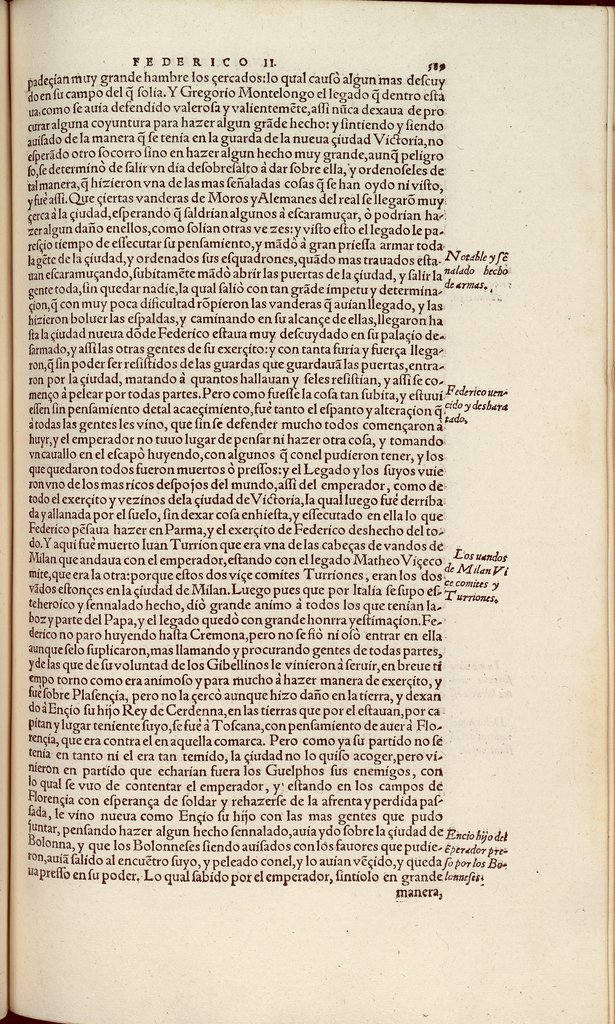 FEDERICO II.
589
padeçian muy grande hambre los çercados: lo qual causò algun mas descuy
do en su campo del q̃ solia. Y Gregorio Montelongo el legado q̃ dentro esta
ua, como se auia defendido valerosa y valientemẽte, assi nũca dexaua de pro
curar alguna coyuntura para hazer algun grãde hecho: y sintiendo y siendo
auisado de la manera q̃ se tenia en la guarda de la nueua çiudad Victoria, no
esperãdo otro socorro sino en hazer algun hecho muy grande, aunq̃ peligro
so, se determinò de salir vn dia desobresalto à dar sobre ella, y ordenoseles de
tal manera, q̃ hizieron vna de las mas señaladas cosas q̃ se han oydo ni visto,
y fuè assi. Que çiertas vanderas de Moros y Alemanes del real se llegarõ muy
çerca à la çiudad, esperando q̃ saldrian algunos à escaramuçar, ò podrian ha-
zer algun daño en ellos, como solian otras vezes: y visto esto el legado le pa-
resçio tiempo de essecutar su pensamiento, y mãdò à gran priessa armar toda
la gẽte de la çiudad, y ordenados sus esquadrones, quãdo mas trauados esta-
uan escaramuçando, subitamẽte mãdò abrir las puertas de la çiudad, y salir la
gente toda, sin quedar nadie, la qual saliò con tan grãde impetu y determina-
çion, q̃ con muy poca dificultad rõpieron las vanderas q̃ auian llegado, y las
hizieron boluer las espaldas, y caminando en su alcançe de ellas, llegaron ha
sta la çiudad nueua dõde Federico estaua muy descuydado en su palaçio de-
sarmado, y assi las otras gentes de su exerçito: y con tanta furia y fuerça llega-
ron, q̃ sin poder ser resistidos de las guardas que guardauã las puertas, entra-
ron por la çiudad, matando à quantos hallauan y seles resistian, y assi se co-
menço à pelear por todas partes. Pero como fuesse la cosa tan subita, y estuui
essen sin pensamiento de tal acaeçimiento, fuè tanto el espanto y alteraçion q̃
à todas las gentes les vino, que sin se defender mucho todos començaron à
huyr, y el emperador no tuuo lugar de pensar ni hazer otra cosa, y tomando
vn cauallo en el escapò huyendo, con algunos q̃ conel pudieron tener, y los
que quedaron todos fueron muertos ò pressos: y el Legado y los suyos vuie
ron vno de los mas ricos despojos del mundo, assi del emperador, como de
todo el exerçito y vezinos dela çiudad de Victoria, la qual luego fuè derriba
da y allanada por el suelo, sin dexar cosa enhiesta, y essecutado en ella lo que
Federico pẽsaua hazer en Parma, y el exerçito de Federico deshecho del to-
do. Y aqui fuè muerto Iuan Turrion que era vna de las cabeças de vandos de
Milan que andaua con el emperador, estando con el legado Matheo Viçeco
mite, que era la otra: porque estos dos viçe comites Turriones, eran los dos
vãdos estonçes en la çiudad de Milan. Luego pues que por Italia se supo es-
te heroico y sennalado hecho, diò grande animo à todos los que tenian la-
boz y parte del Papa, y el legado quedò con grande honrra y estimaçion. Fe-
derico no paro huyendo hasta Cremona, pero no se fiò ni osò entrar en ella
aunque selo suplicaron, mas llamando y procurando gentes de todas partes,
y de las que de su voluntad de los Gibellinos le vinieron à seruir, en breue ti
empo torno como era animoso y para mucho à hazer manera de exerçito, y
fuè sobre Plasençia, pero no la çercò aunque hizo daño en la tierra, y dexan
do à Ençio su hijo Rey de Cerdenna, en las tierras que por el estauan, por ca
pitan y lugar teniente suyo, se fuè à Toscana, con pensamiento de auer à Flo-
rençia, que era contra el en aquella comarca. Pero como ya su partido no se
tenia en tanto ni el era tan temido, la çiudad no lo quiso acoger, pero vi-
nieron en partido que echarian fuera los Guelphos sus enemigos, con
lo qual se vuo de contentar el emperador, y estando en los campos de
Florençia con esperança de soldar y rehazerse de la afrenta y perdida pas-
sada, le vino nueua como Ençio su hijo con las mas gentes que pudo
juntar, pensando hazer algun hecho sennalado, auia ydo sobre la çiudad de
Bolonna, y que los Bolonneses siendo auisados con los fauores que pudie-
ron, auiã salido al encuẽtro suyo, y peleado conel, y lo auian vẽçido, y queda
ua presso en su poder. Lo qual sabido por el emperador, sintiolo en grande
manera,
Notable y sẽ
nalado hecho
de armas.
Federico uen
cido y desbara
tado,
Los uandos
de Milan Vi
ce comites y
Turriones.
Encio hijo del
ẽperador pre-
so por los Bo-
lonneses.